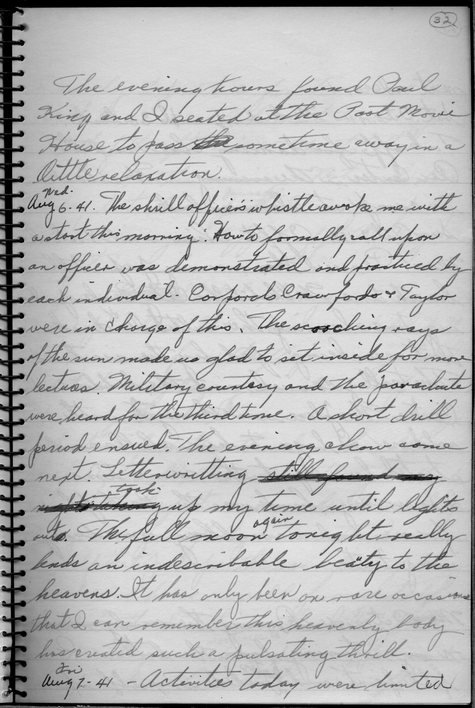 32
The evening hours found Paul
King and I seated at the Post Movie
House to pass the sometime away in a
little relaxation.
Wed.
Aug 6-41. The shrill officer's whistle awoke me with
a start this morning. How to formally call upon
an officer was demonstrated and practiced by
each individual. Corporals Crawford & Taylor
were in charge of this. The scorching rays
of the sun made us glad to sit inside for more
lectures. Military courtesy and the parachute
were heard for the third time. A short drill
period ensued. The evening chow came
next. Letterwritting still found my
took
up my time until lights
again
out. The full moon tonight really
lends an indescribable beaty to the
heavens. It has only been on rare occasions
that I can remember this heavenly body
has created such a pulsating thrill.
Fri
Aug 7-41 - Activities today were limited